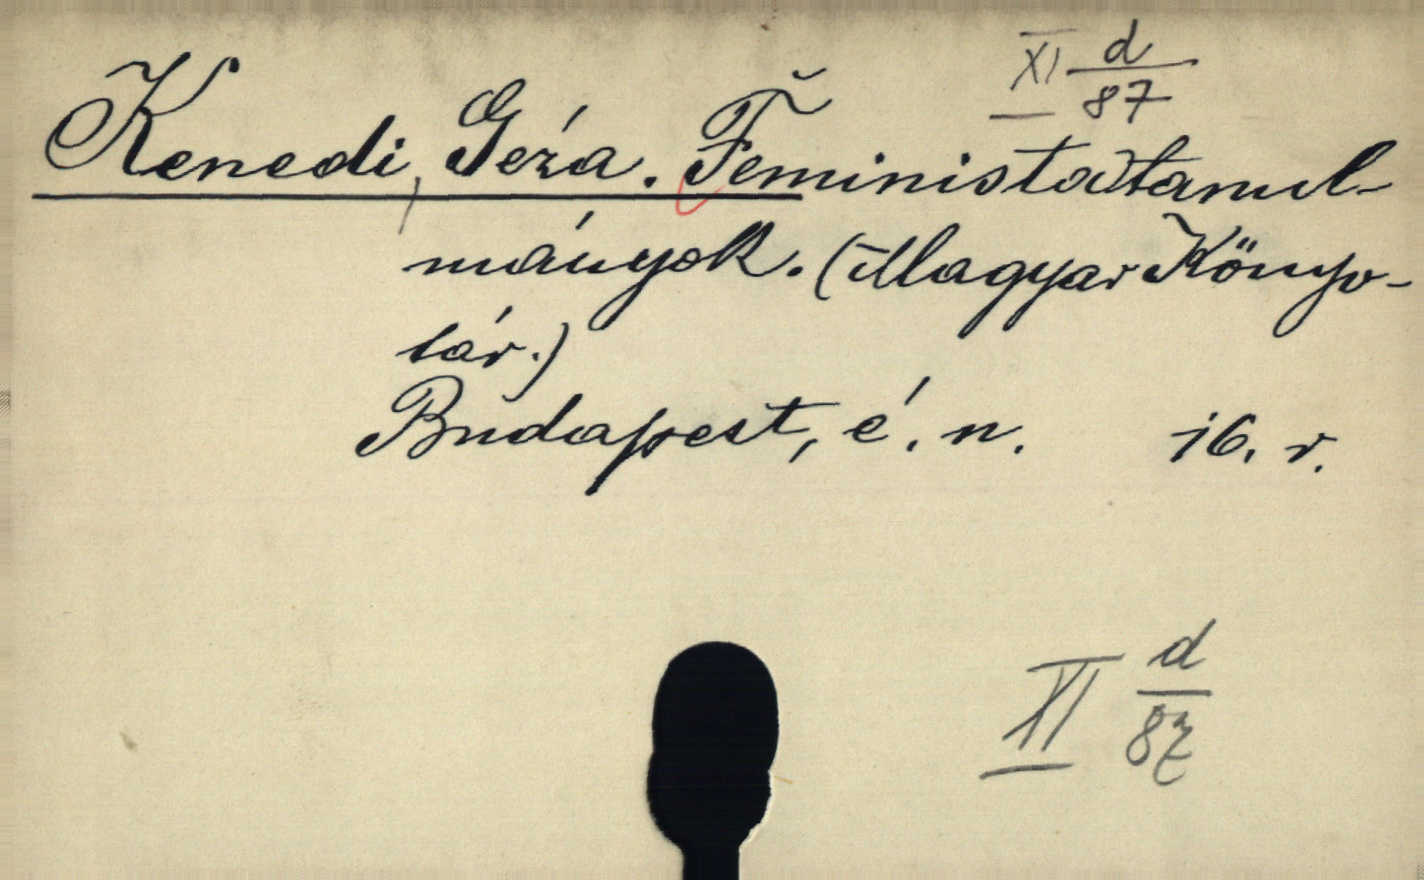 XI d/87
Kenedi, Géza. Feminista tanul-
mányok. (Magyar Könyv-
tár.)
Budapest, é. n. 16. r.
XI d/87